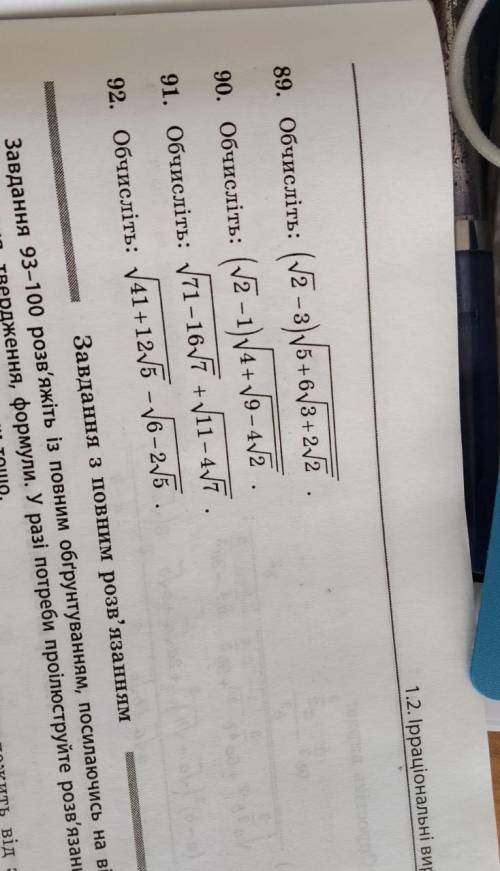 1.2. Ірраціональні вир
89. Обчисліть: (√2 − 3)√(5 + 6√(3 + 2√2)) .
90. Обчисліть: (√2 − 1)√(4 + √(9 − 4√2)) .
91. Обчисліть: √(71 − 16√7) + √(11 − 4√7) .
92. Обчисліть: √(41 + 12√5) − √(6 − 2√5) .
Завдання з повним розв’язанням
Завдання 93–100 розв’яжіть із повним обґрунтуванням, посилаючись на ві
твердження, формули. У разі потреби проілюструйте розв’язанн
тощо.